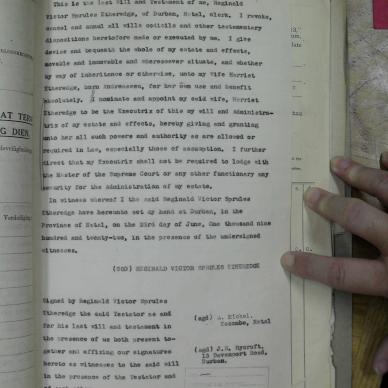 This is the last Will and Testament of me, Reginald
Victor Sprules Etheredge, of Durban, Natal, clerk. I revoke,
cancel and annul all wills codicils and other testamentary
dispositions heretofore made or executed by me. I give
devise and bequeath the whole of my estate and effects,
movable and immovable and wheresoever situate, and whether
by way of inheritance or otherwise, unto my Wife Harriet
Etheredge, born for her own use and benefit
absolutely. I nominate and appoint my said wife, Harriet
Etheredge to be the Executrix of this my will and Administra-
trix of my estate and effects, hereby giving and granting
unto her all such powers and authority as are allowed or
required in Law, especially those of assumption. I further
direct that my Executrix shall not be required to lodge with
the Master of the Supreme Court or any other functionary any
security for the Administration of my estate.
In witness whereof I the said Reginald Victor Sprules
Etheredge have hereunto set my hand at Durban, in the
Province of Natal, on the 23rd day of June, One thousand nine
hundred and twenty-two, in the presence of the undersigned
witnesses.
(SGD) REGINALD VICTOR SPRULES ETHEREDGE
Signed by Reginald Victor Sprules
Etheredge the said Testator as and
for his last will and testament in
the presence of us both present to-
gether and affixing our signatures
hereto as witnesses to the said will
in the presence of the Testator and
(sgd) Michel.
Escombe, Natal
(sgd) J.H. Rycroft,
13 Davenport Road,
Durban.
AT TE
G DIEN